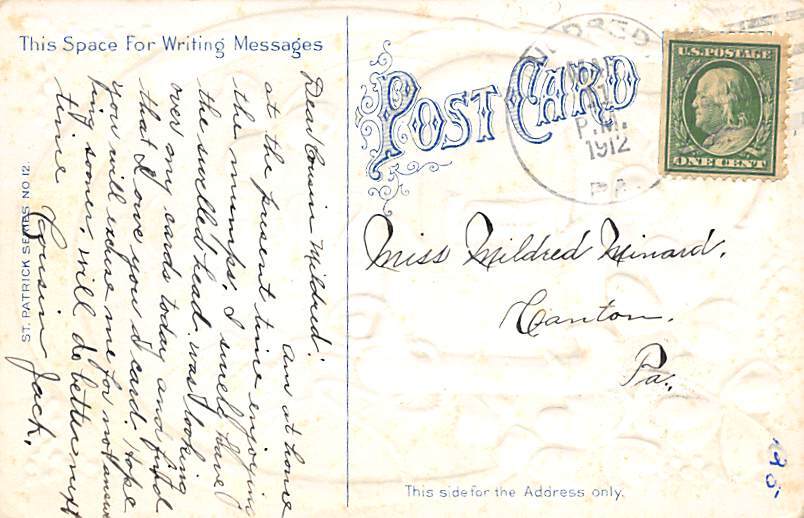 This Space For Writing Messages
Dear Cousin Mildred:
Am at home
at the present time enjoying
the mumps. I surely have
the swelled head. was looking
over my cards today and find
that I owe you a card. Hope
you will excuse me for not answer
ing sooner. will do better next
time
Cousin Jack.
ST. PATRICK SERIES NO. 12.
POST CARD
P.M.
1912
PA.
U.S. POSTAGE
ONE CENT
Miss Mildred Minard.
Canton.
Pa.
This side for the Address only.